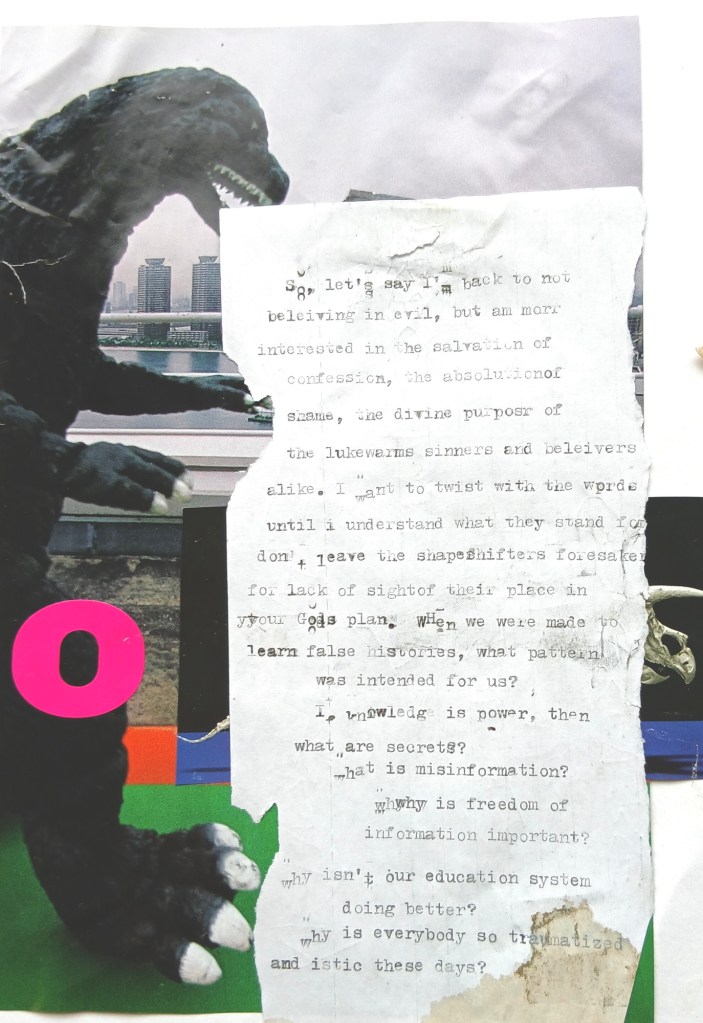 So, let's say I'm back to not
beleiving in evil, but am morr
interested in the salvation of
confession, the absolutionof
shame, the divine purposr of
the lukewarms sinners and beleivers
alike. I want to twist with the wprds
until i understand what they stand for
don't leave the shapeshifters foresaken
for lack of sightof their place in
yyour Gods plan. WHen we were made to
O
learn false histories, what pattern
was intended for us?
If knowledge is power, then
what are secrets?
What is misinformation?
Whywhy is freedom of
information important?
Why isn't our education system
doing better?
Why is everybody so traumatized
and istic these days?